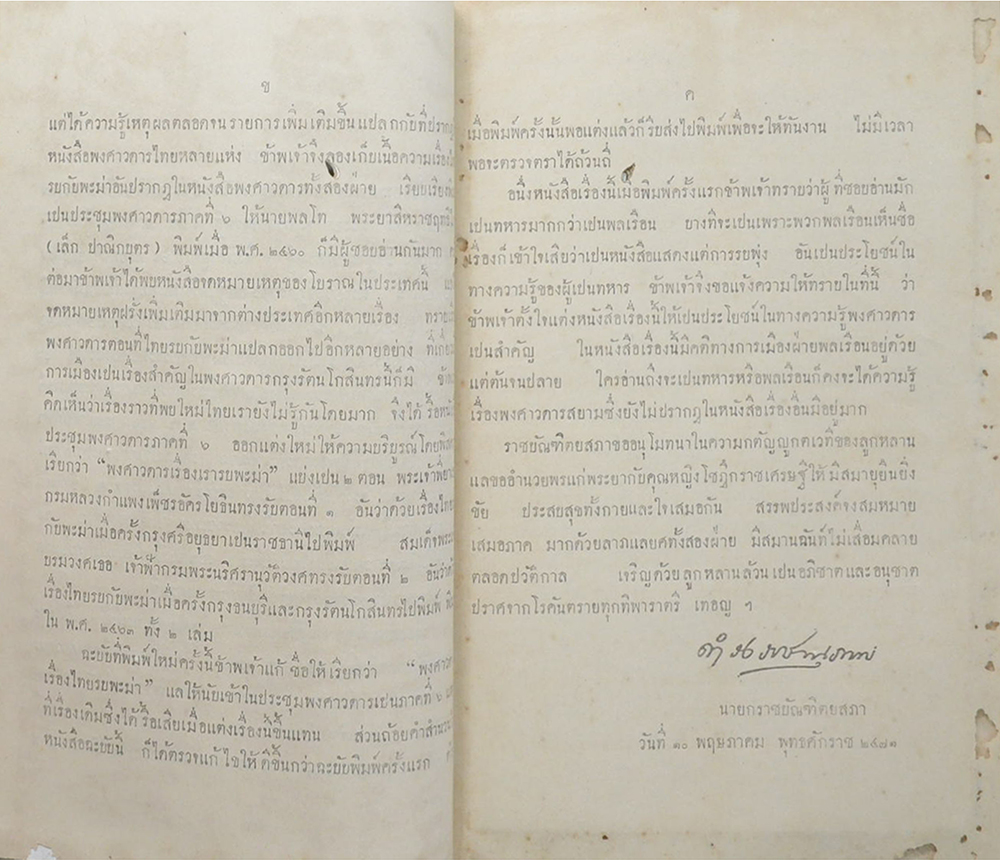 ข
แต่ได้ความรู้เหตุผลตลอดจนรายการเพิ่มเติมขึ้นแปลกกับที่ปรากฏ
หนังสือพงศาวดารไทยหลายแห่ง ข้าพเจ้าจึงลองเก็บเนื้อความเรื่อง
รบกับพะม่าอันปรากฏในหนังสือพงศาวดารทั้งสองฝ่าย เรียบเรียง
เปนประชุมพงศาวดารภาคที่ ๖ ให้นายพลโท พระยาสีหราชฤทธิ
(เล็ก ปาณิกบุตร) พิมพ์เมื่อ พ.ศ. ๒๔๖๐ ก็มีผู้ชอบอ่านกันมาก
ต่อมาข้าพเจ้าได้พบหนังสือจดหมายเหตุของโบราณในประเทศนี้
จดหมายเหตุฝรั่งเพิ่มเติมมาจากต่างประเทศอีกหลายเรื่อง ทราบ
พงศาวดารตอนที่ไทยรบกับพะม่าแปลกออกไปอีกหลายอย่าง ที่เกี่ยว
การเมืองเปนเรื่องสำคัญในพงศาวดารกรุงรัตนโกสินทรนี้ก็มี
คิดเห็นว่าเรื่องราวที่พบใหม่ไทยเรายังไม่รู้กันโดยมาก จึงได้รื้อหนัง
ประชุมพงศาวดารภาคที่ ๖ ออกแต่งใหม่ให้ความบริบูรณ์โดยพิศ
เรียกว่า “พงศาวดารเรื่องเรารบพะม่า” แบ่งเปน ๒ ตอน พระเจ้าพี่ยา
กรมหลวงกำแพงเพ็ชรอัครโยธินทรงรับตอนที่ ๑ อันว่าด้วยเรื่องไทย
กับพะม่าเมื่อครั้งกรุงศรีอยุธยาเปนราชธานีไปพิมพ์ สมเด็จพระ
บรมวงศเธอ เจ้าฟ้ากรมพระนริศรานุวัติวงศทรงรับตอนที่ ๒ อันว่า
เรื่องไทยรบกับพะม่าเมื่อครั้งกรุงธนบุรีและกรุงรัตนโกสินทรไปพิมพ์
ใน พ.ศ. ๒๔๖๓ ทั้ง ๒ เล่ม
ฉะบับที่พิมพ์ใหม่ครั้งนี้ข้าพเจ้าแก้ชื่อให้เรียกว่า “พงศาว
เรื่องไทยรบพะม่า” แลให้นับเข้าในประชุมพงศาวดารเปนภาคที่ ๖
ที่เรื่องเดิมซึ่งได้รื้อเสียเมื่อแต่งเรื่องนี้ขึ้นแทน ส่วนถ้อยคำสำนวน
หนังสือฉะบับนี้ ก็ได้ตรวจแก้ไขให้ดีขึ้นกว่าฉะบับพิมพ์ครั้งแรก
ค
เมื่อพิมพ์ครั้งนั้นพอแต่งแล้วก็รีบส่งไปพิมพ์เพื่อจะให้ทันงาน ไม่มีเวลา
พอจะตรวจตราได้ถ้วนถี่
อนึ่งหนังสือเรื่องนี้เมื่อพิมพ์ครั้งแรกข้าพเจ้าทราบว่าผู้ที่ชอบอ่านมัก
เปนทหารมากกว่าเปนพลเรือน บางทีจะเปนเพราะพวกพลเรือนเห็นชื่อ
เรื่องก็เข้าใจเสียว่าเปนหนังสือแสดงแต่การรบพุ่ง อันเปนประโยชน์ใน
ทางความรู้ของผู้เปนทหาร ข้าพเจ้าจึงขอแจ้งความให้ทราบในที่นี้ ว่า
ข้าพเจ้าตั้งใจแต่งหนังสือเรื่องนี้ให้เปนประโยชน์ในทางความรู้พงศาวดาร
เปนสำคัญ ในหนังสือเรื่องนี้มีคติทางการเมืองฝ่ายพลเรือนอยู่ด้วย
แต่ต้นจนปลาย ใครอ่านถึงจะเปนทหารหรือพลเรือนก็คงจะได้ความรู้
เรื่องพงศาวดารสยามซึ่งยังไม่ปรากฏในหนังสือเรื่องอื่นมีอยู่มาก
ราชบัณฑิตยสภาขออนุโมทนาในความกตัญญูกตเวทีของลูกหลาน
แลขออำนวยพรแก่พระยากับคุณหญิงโชฎึกราชเศรษฐีให้มีสมายุยืนยิ่ง
ชัย ประสบสุขทั้งกายและใจเสมอกัน สรรพประสงค์จงสมหมาย
เสมอภาค มากด้วยลาภแลยศทั้งสองฝ่าย มีสมานฉันท์ไม่เสื่อมคลาย
ตลอดปวัติกาล เจริญด้วยลูกหลานล้วนเปนอภิชาตและอนุชาต
ปราศจากโรคันตรายทุกทิพาราตรี เทอญ ฯ
ดำรงราชานุภาพ
นายกราชบัณฑิตยสภา
วันที่ ๑๐ พฤษภาคม พุทธศักราช ๒๔๗๑